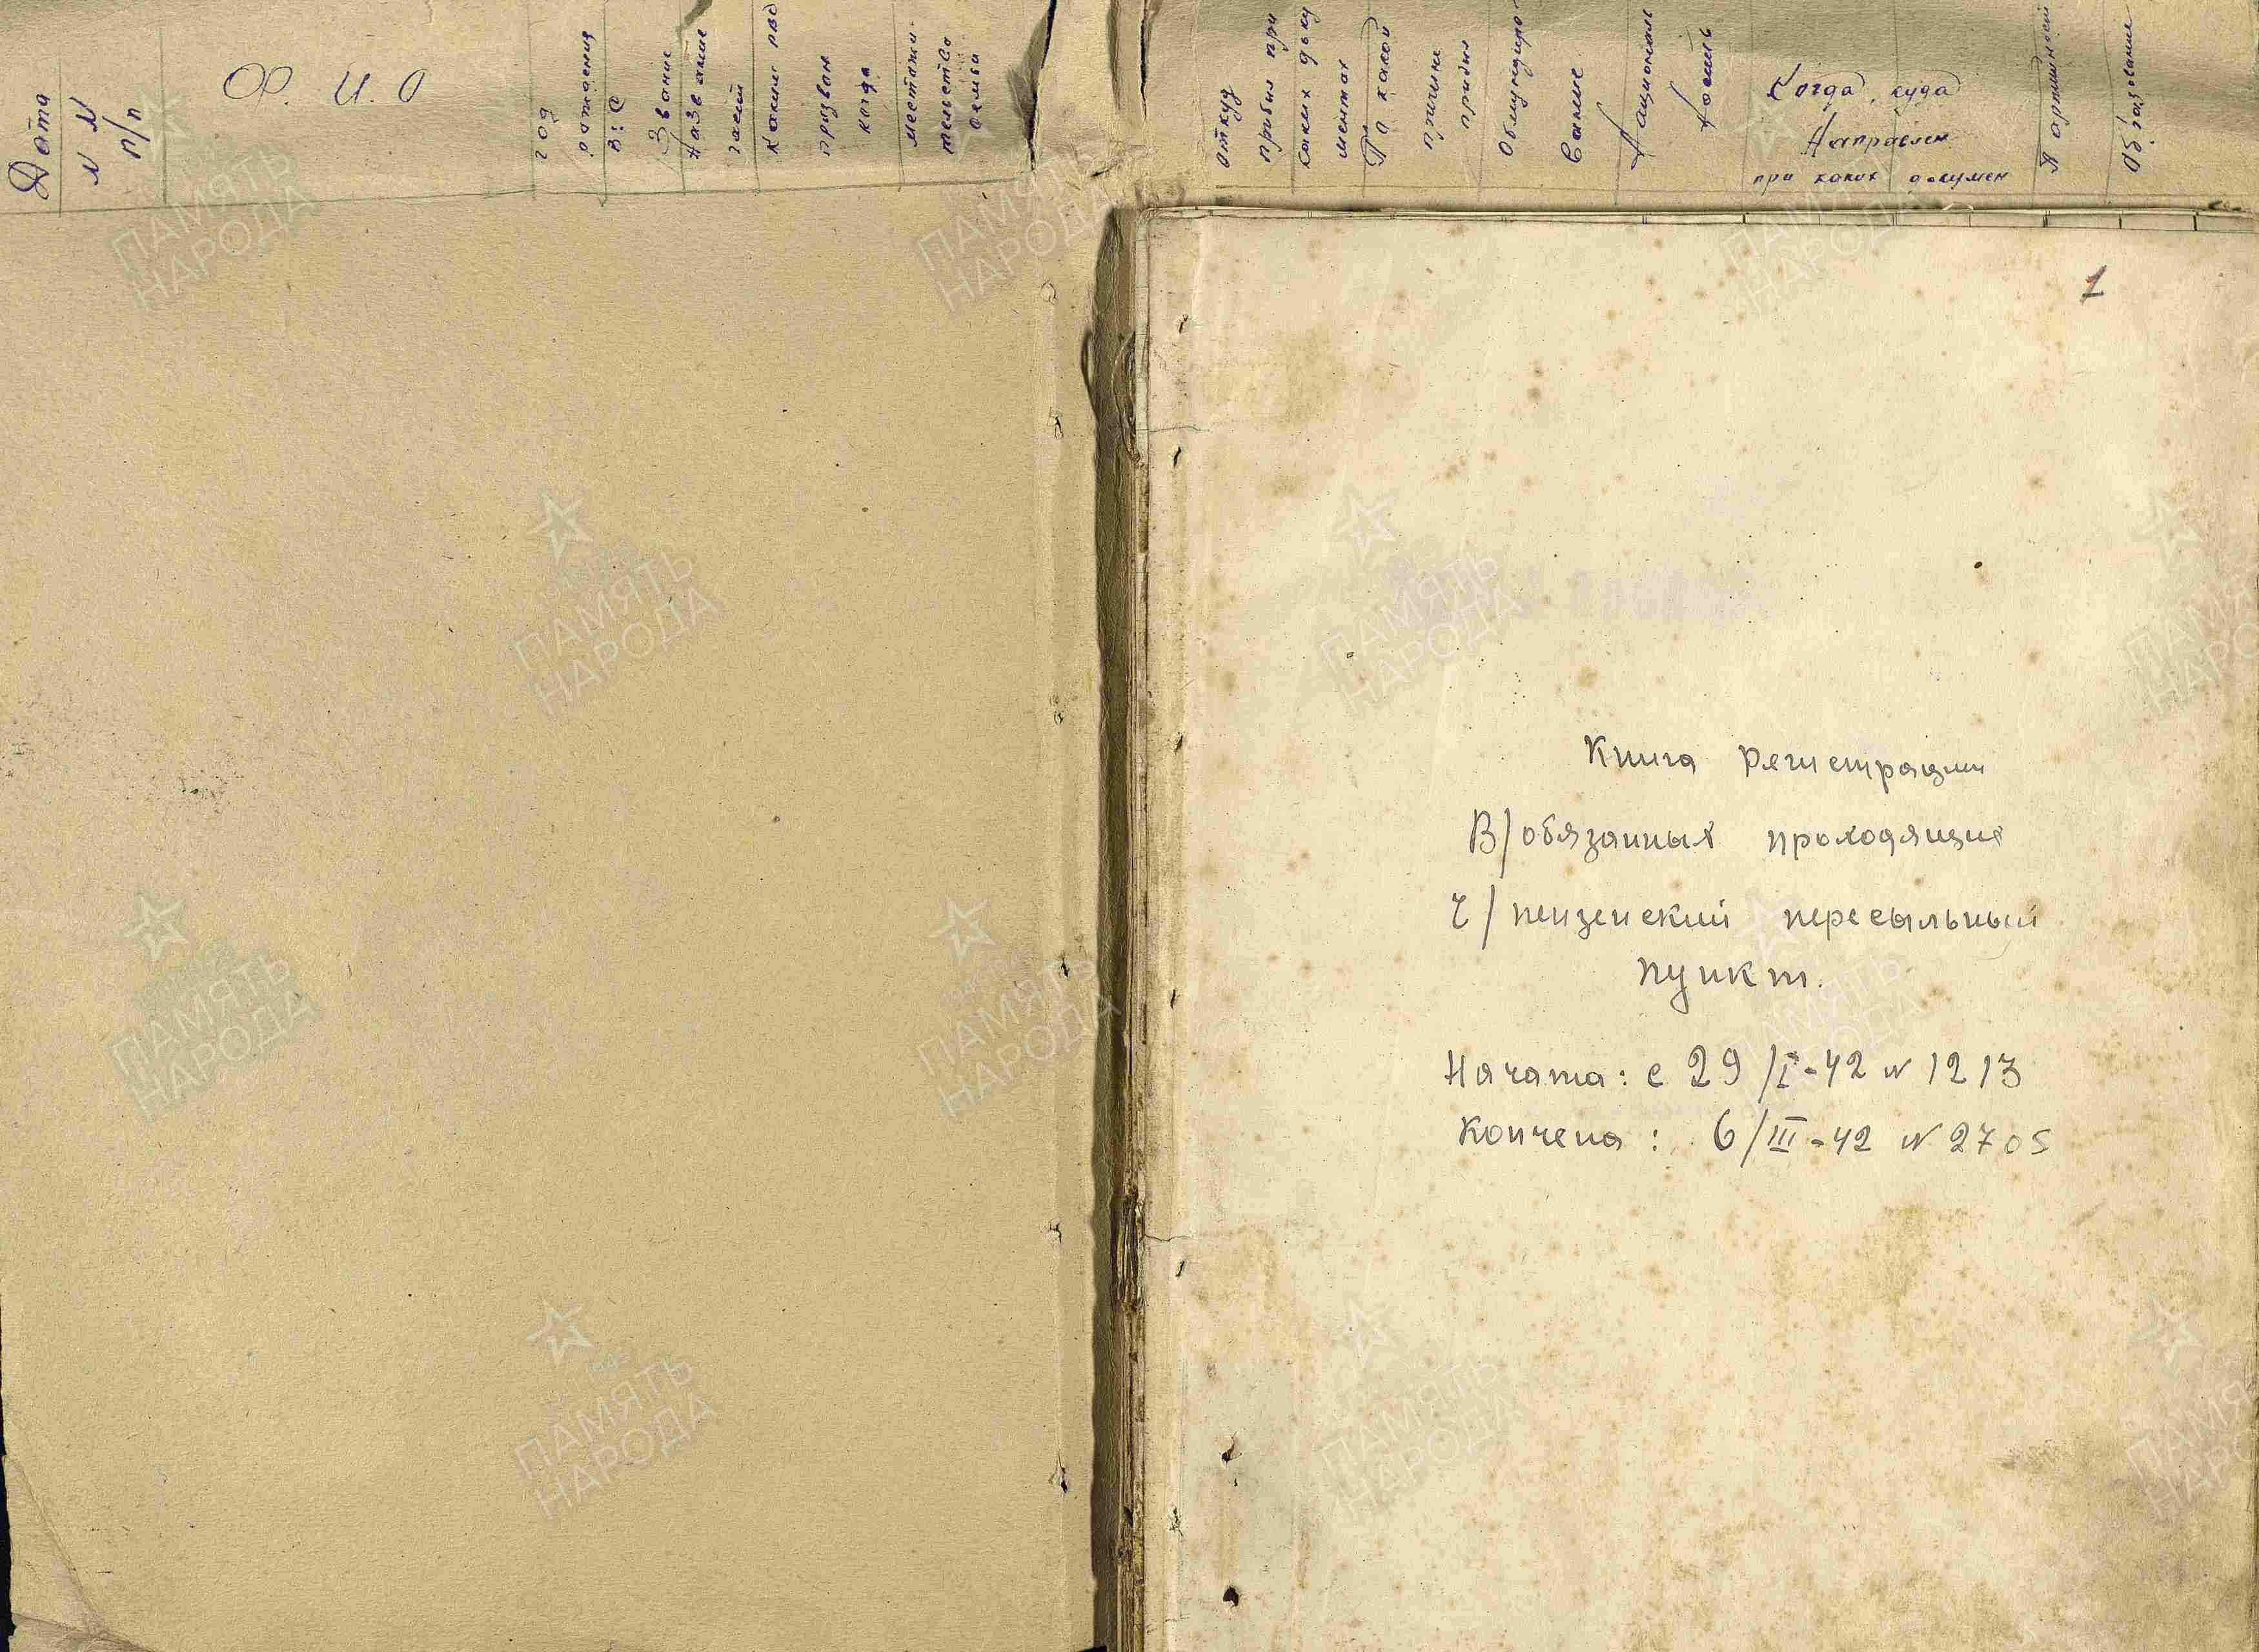 Дата
N N
п/п
Ф. И. О
год
рождения
В:С
Звание
Название
части
Каким РВС
призван
когда
местожи-
тельство
семьи
Откуд
прибыл при
каких доку
ментах
По какой
причине
прибыл
Обмундиро-
вание
Националь
ность
Когда, куда
Направлен
при каких докумен
Партийност
Образование
1
Книга регистрации
В/обязанных проходящие
ч/пензенский пересыльный
пункт.
Начата: с 29/I-42 N 1213
Кончена: 6/III-42 N 2705
ПАМЯТЬ
НАРОДА